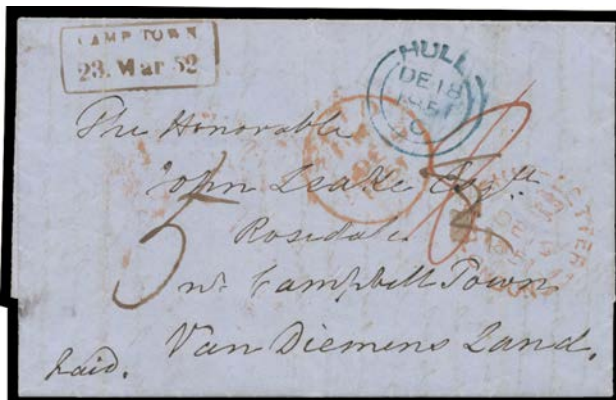 CAMP TOWN
23. Mar 52
HULL
DE 18
1851
C
The Honorable
John Leake Esqre
Rosedale
nr. Campbell Town
Van Diemens Land.
5
Paid.